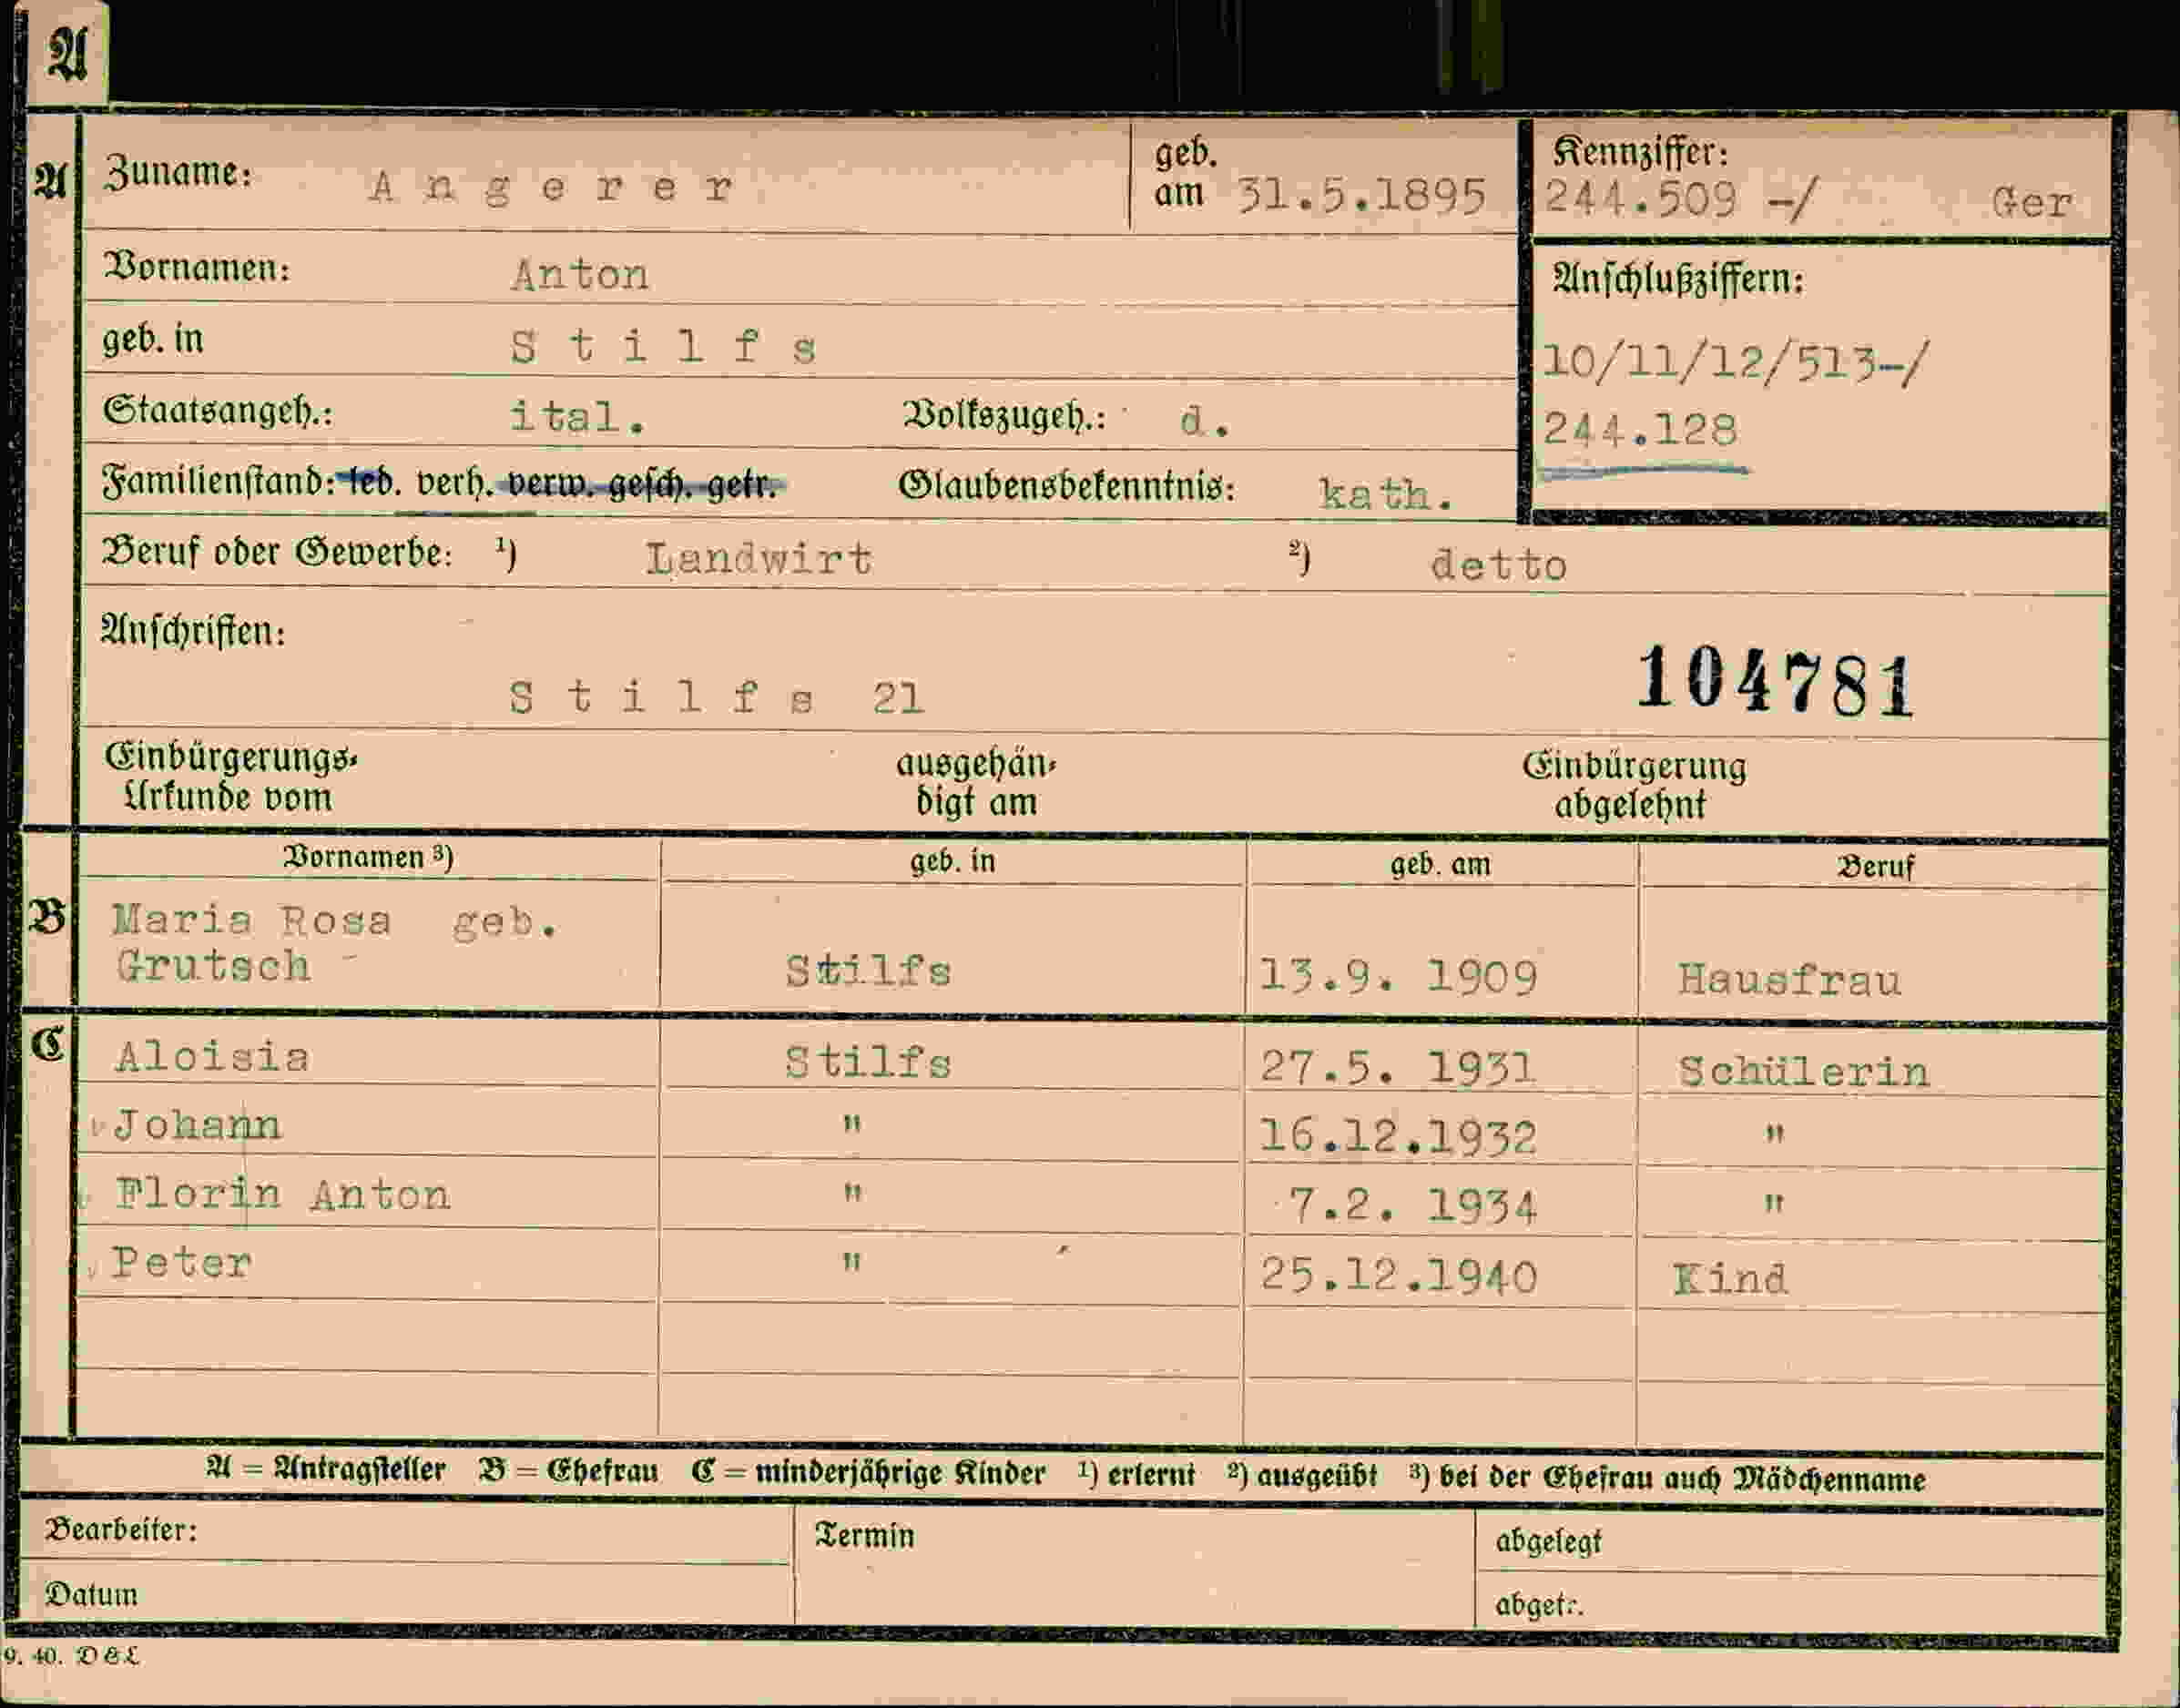 A
A Zuname: Angerer geb. am 31.5.1895 Kennziffer: 244.509 -/ Ger
Vornamen: Anton Anschlußziffern:
geb. in Stilfs 10/11/12/513-/
Staatsangeh.: ital. Volkszugeh.: d. 244.128
Familienstand: led. verh. verw. gesch. getr. Glaubensbekenntnis: kath.
Beruf oder Gewerbe: ¹) Landwirt ²) detto
Anschriften:
Stilfs 21 104781
Einbürgerungs- ausgehän- Einbürgerung
Urkunde vom digt am abgelehnt
Vornamen ³) geb. in geb. am Beruf
B Maria Rosa geb.
Grutsch Stilfs 13.9. 1909 Hausfrau
C Aloisia Stilfs 27.5. 1931 Schülerin
Johann " 16.12.1932 "
Florin Anton " 7.2. 1934 "
Peter " 25.12.1940 Kind
A = Antragsteller B = Ehefrau C = minderjährige Kinder ¹) erlernt ²) ausgeübt ³) bei der Ehefrau auch Mädchenname
Bearbeiter: Termin abgelegt
Datum abgetr.
9. 40. D & L